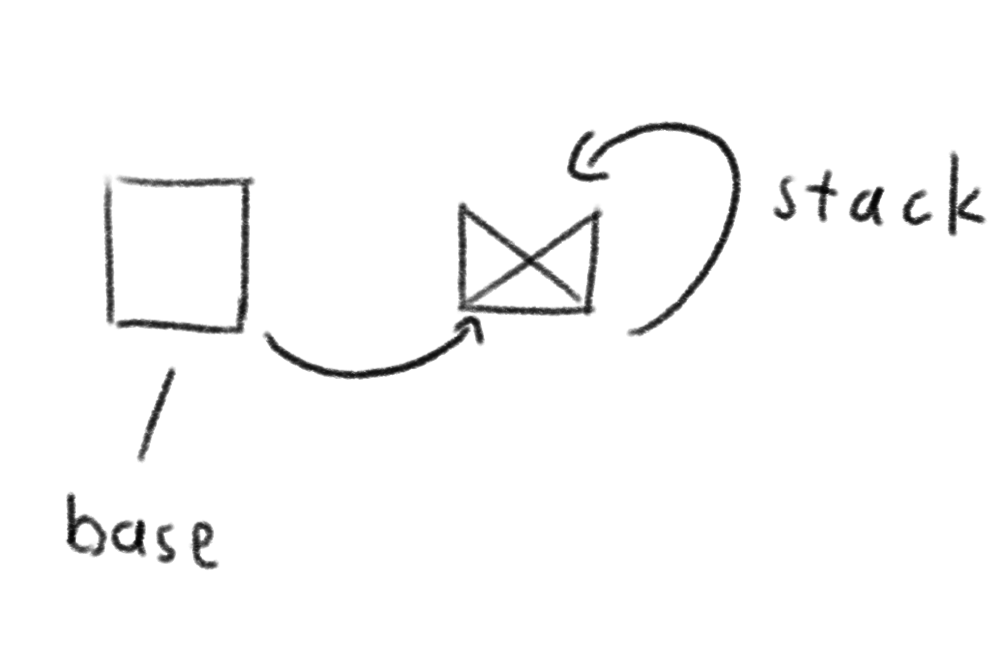 stack
base